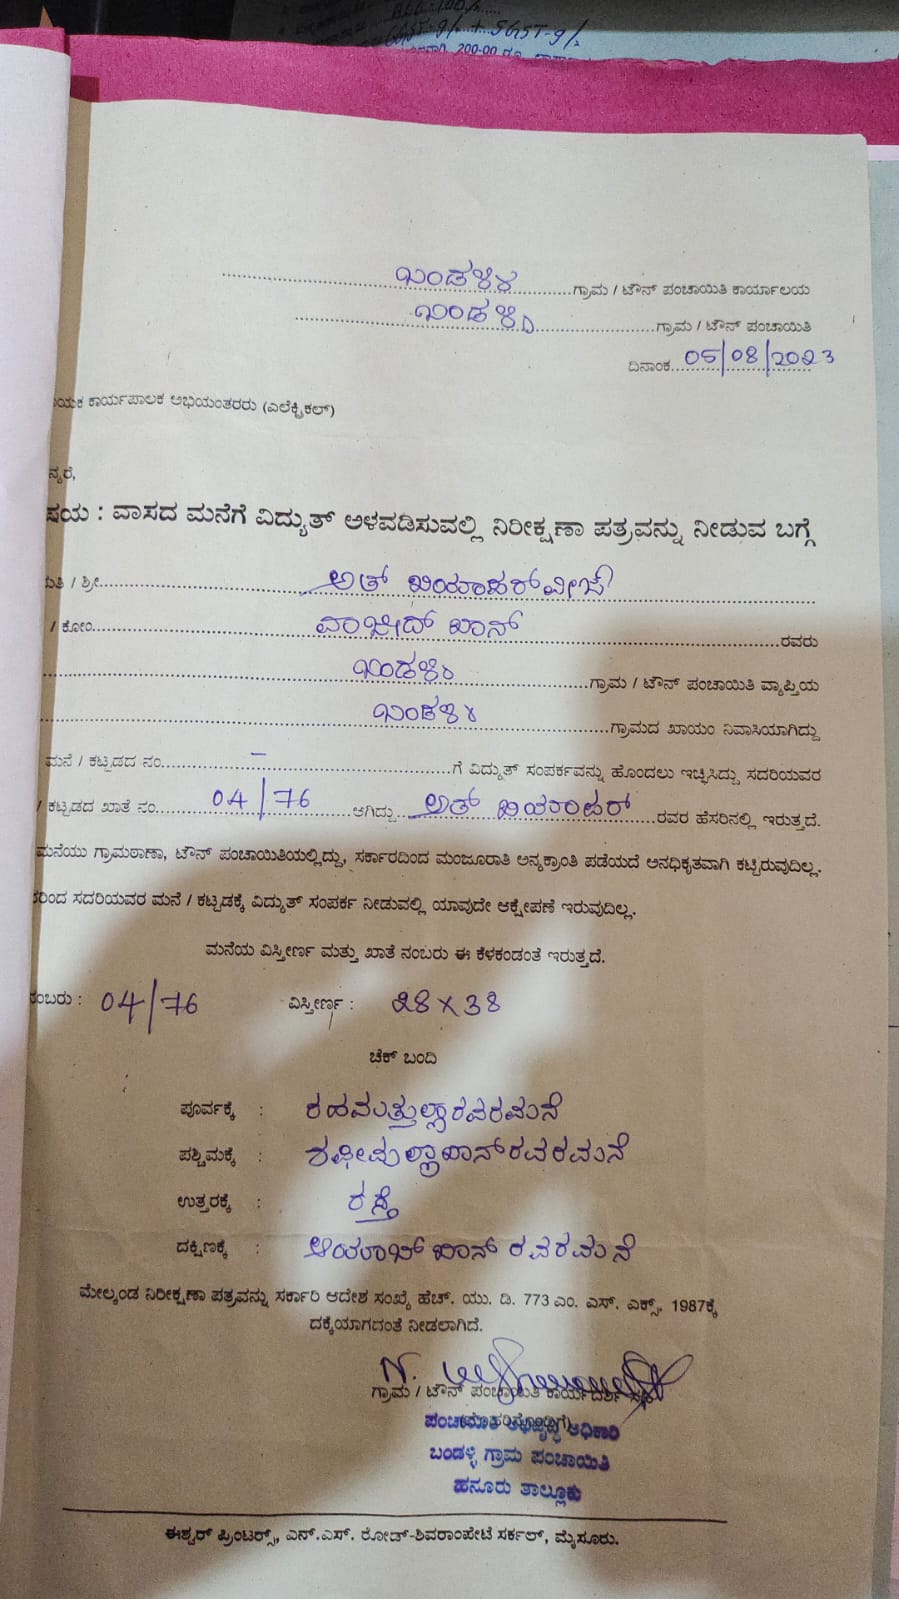 CGST-9% + SGST-9%
200-00 ರೂ
ಬಂಡಳ್ಳಿ ಗ್ರಾಮ / ಟೌನ್ ಪಂಚಾಯಿತಿ ಕಾರ್ಯಾಲಯ
ಬಂಡಳ್ಳಿ ಗ್ರಾಮ / ಟೌನ್ ಪಂಚಾಯಿತಿ
ದಿನಾಂಕ 05/08/2023
ಕಾರ್ಯಪಾಲಕ ಅಭಿಯಂತರರು (ಎಲೆಕ್ಟ್ರಿಕಲ್)
ನ್ಯರೆ,
ಷಯ : ವಾಸದ ಮನೆಗೆ ವಿದ್ಯುತ್ ಅಳವಡಿಸುವಲ್ಲಿ ನಿರೀಕ್ಷಣಾ ಪತ್ರವನ್ನು ನೀಡುವ ಬಗ್ಗೆ
ಮತಿ / ಶ್ರೀ ಅತ್
/ ಕೋಂ ವಾಜೀದ್ ಖಾನ್ ರವರು
ಬಂಡಳ್ಳಿ ಗ್ರಾಮ / ಟೌನ್ ಪಂಚಾಯಿತಿ ವ್ಯಾಪ್ತಿಯ
ಬಂಡಳ್ಳಿ ಗ್ರಾಮದ ಖಾಯಂ ನಿವಾಸಿಯಾಗಿದ್ದು
ಮನೆ / ಕಟ್ಟಡದ ನಂ. – ಗೆ ವಿದ್ಯುತ್ ಸಂಪರ್ಕವನ್ನು ಹೊಂದಲು ಇಚ್ಛಿಸಿದ್ದು ಸದರಿಯವರ
/ ಕಟ್ಟಡದ ಖಾತೆ ನಂ. 04/76 ಆಗಿದ್ದು ಅತ್ ರವರ ಹೆಸರಿನಲ್ಲಿ ಇರುತ್ತದೆ.
ಮನೆಯು ಗ್ರಾಮಠಾಣಾ, ಟೌನ್ ಪಂಚಾಯಿತಿಯಲ್ಲಿದ್ದು, ಸರ್ಕಾರದಿಂದ ಮಂಜೂರಾತಿ ಅನ್ಯಕ್ರಾಂತಿ ಪಡೆಯದೆ ಅನಧಿಕೃತವಾಗಿ ಕಟ್ಟಿರುವುದಿಲ್ಲ.
ರಿಂದ ಸದರಿಯವರ ಮನೆ / ಕಟ್ಟಡಕ್ಕೆ ವಿದ್ಯುತ್ ಸಂಪರ್ಕ ನೀಡುವಲ್ಲಿ ಯಾವುದೇ ಆಕ್ಷೇಪಣೆ ಇರುವುದಿಲ್ಲ.
ಮನೆಯ ವಿಸ್ತೀರ್ಣ ಮತ್ತು ಖಾತೆ ನಂಬರು ಈ ಕೆಳಕಂಡಂತೆ ಇರುತ್ತದೆ.
ನಂಬರು : 04/76 ವಿಸ್ತೀರ್ಣ : 28 X 38
ಚೆಕ್ ಬಂದಿ
ಪೂರ್ವಕ್ಕೆ : ರಹಮತ್ತುಲ್ಲಾ ರವರ ಮನೆ
ಪಶ್ಚಿಮಕ್ಕೆ : ಶಫೀವುಲ್ಲಾ ಖಾನ್ ರವರ ಮನೆ
ಉತ್ತರಕ್ಕೆ : ರಸ್ತೆ
ದಕ್ಷಿಣಕ್ಕೆ : ಆಯೂಬ್ ಖಾನ್ ರವರ ಮನೆ
ಮೇಲ್ಕಂಡ ನಿರೀಕ್ಷಣಾ ಪತ್ರವನ್ನು ಸರ್ಕಾರಿ ಆದೇಶ ಸಂಖ್ಯೆ ಹೆಚ್. ಯು. ಡಿ. 773 ಎಂ. ಎಸ್. ಎಕ್ಸ್. 1987ಕ್ಕೆ
ದಕ್ಕೆಯಾಗದಂತೆ ನೀಡಲಾಗಿದೆ.
ಗ್ರಾಮ / ಟೌನ್ ಪಂಚಾಯಿತಿ ಕಾರ್ಯದರ್ಶಿ ಸಹಿ
ಪಂಚಾಯಿತಿ ಅಭಿವೃದ್ಧಿ ಅಧಿಕಾರಿ
ಬಂಡಳ್ಳಿ ಗ್ರಾಮ ಪಂಚಾಯಿತಿ
ಹನೂರು ತಾಲ್ಲೂಕು
ಈಶ್ವರ್ ಪ್ರಿಂಟರ್ಸ್, ಎನ್.ಎಸ್. ರೋಡ್-ಶಿವರಾಂಪೇಟೆ ಸರ್ಕಲ್, ಮೈಸೂರು.